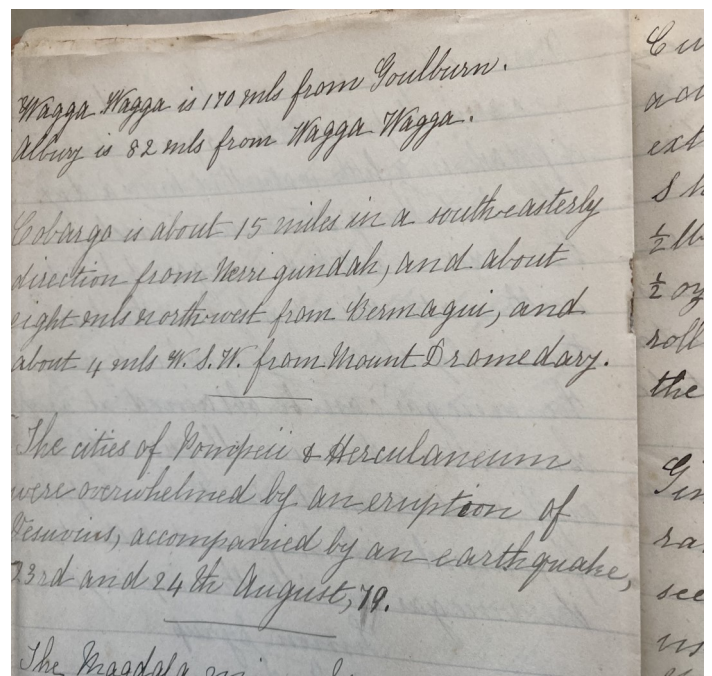 Wagga Wagga is 170 mls from Goulburn.
Albury is 82 mls from Wagga Wagga.
Cobargo is about 15 miles in a south-easterly
direction from Nerrigundah, and about
eight mls north-west from Bermagui, and
about 4 mls W. S. W. from Mount Dromedary.
The cities of Pompeii & Herculaneum
were overwhelmed by an eruption of
Vesuvius, accompanied by an earthquake,
23rd and 24th August, 79.
The Magdala
½ lb
½ oz
roll
the